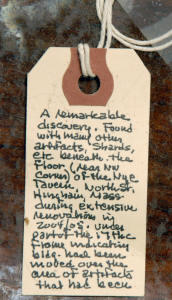 A remarkable
discovery. Found
with many other
artifacts, shards,
etc beneath the
floor (near NW
corner) of the Nye
Tavern, North St.
Hingham, Mass
during extensive
renovations in
2004/05. under
part of the
frame indicating
bldg. had been
moved over the
area of artifacts
that had been